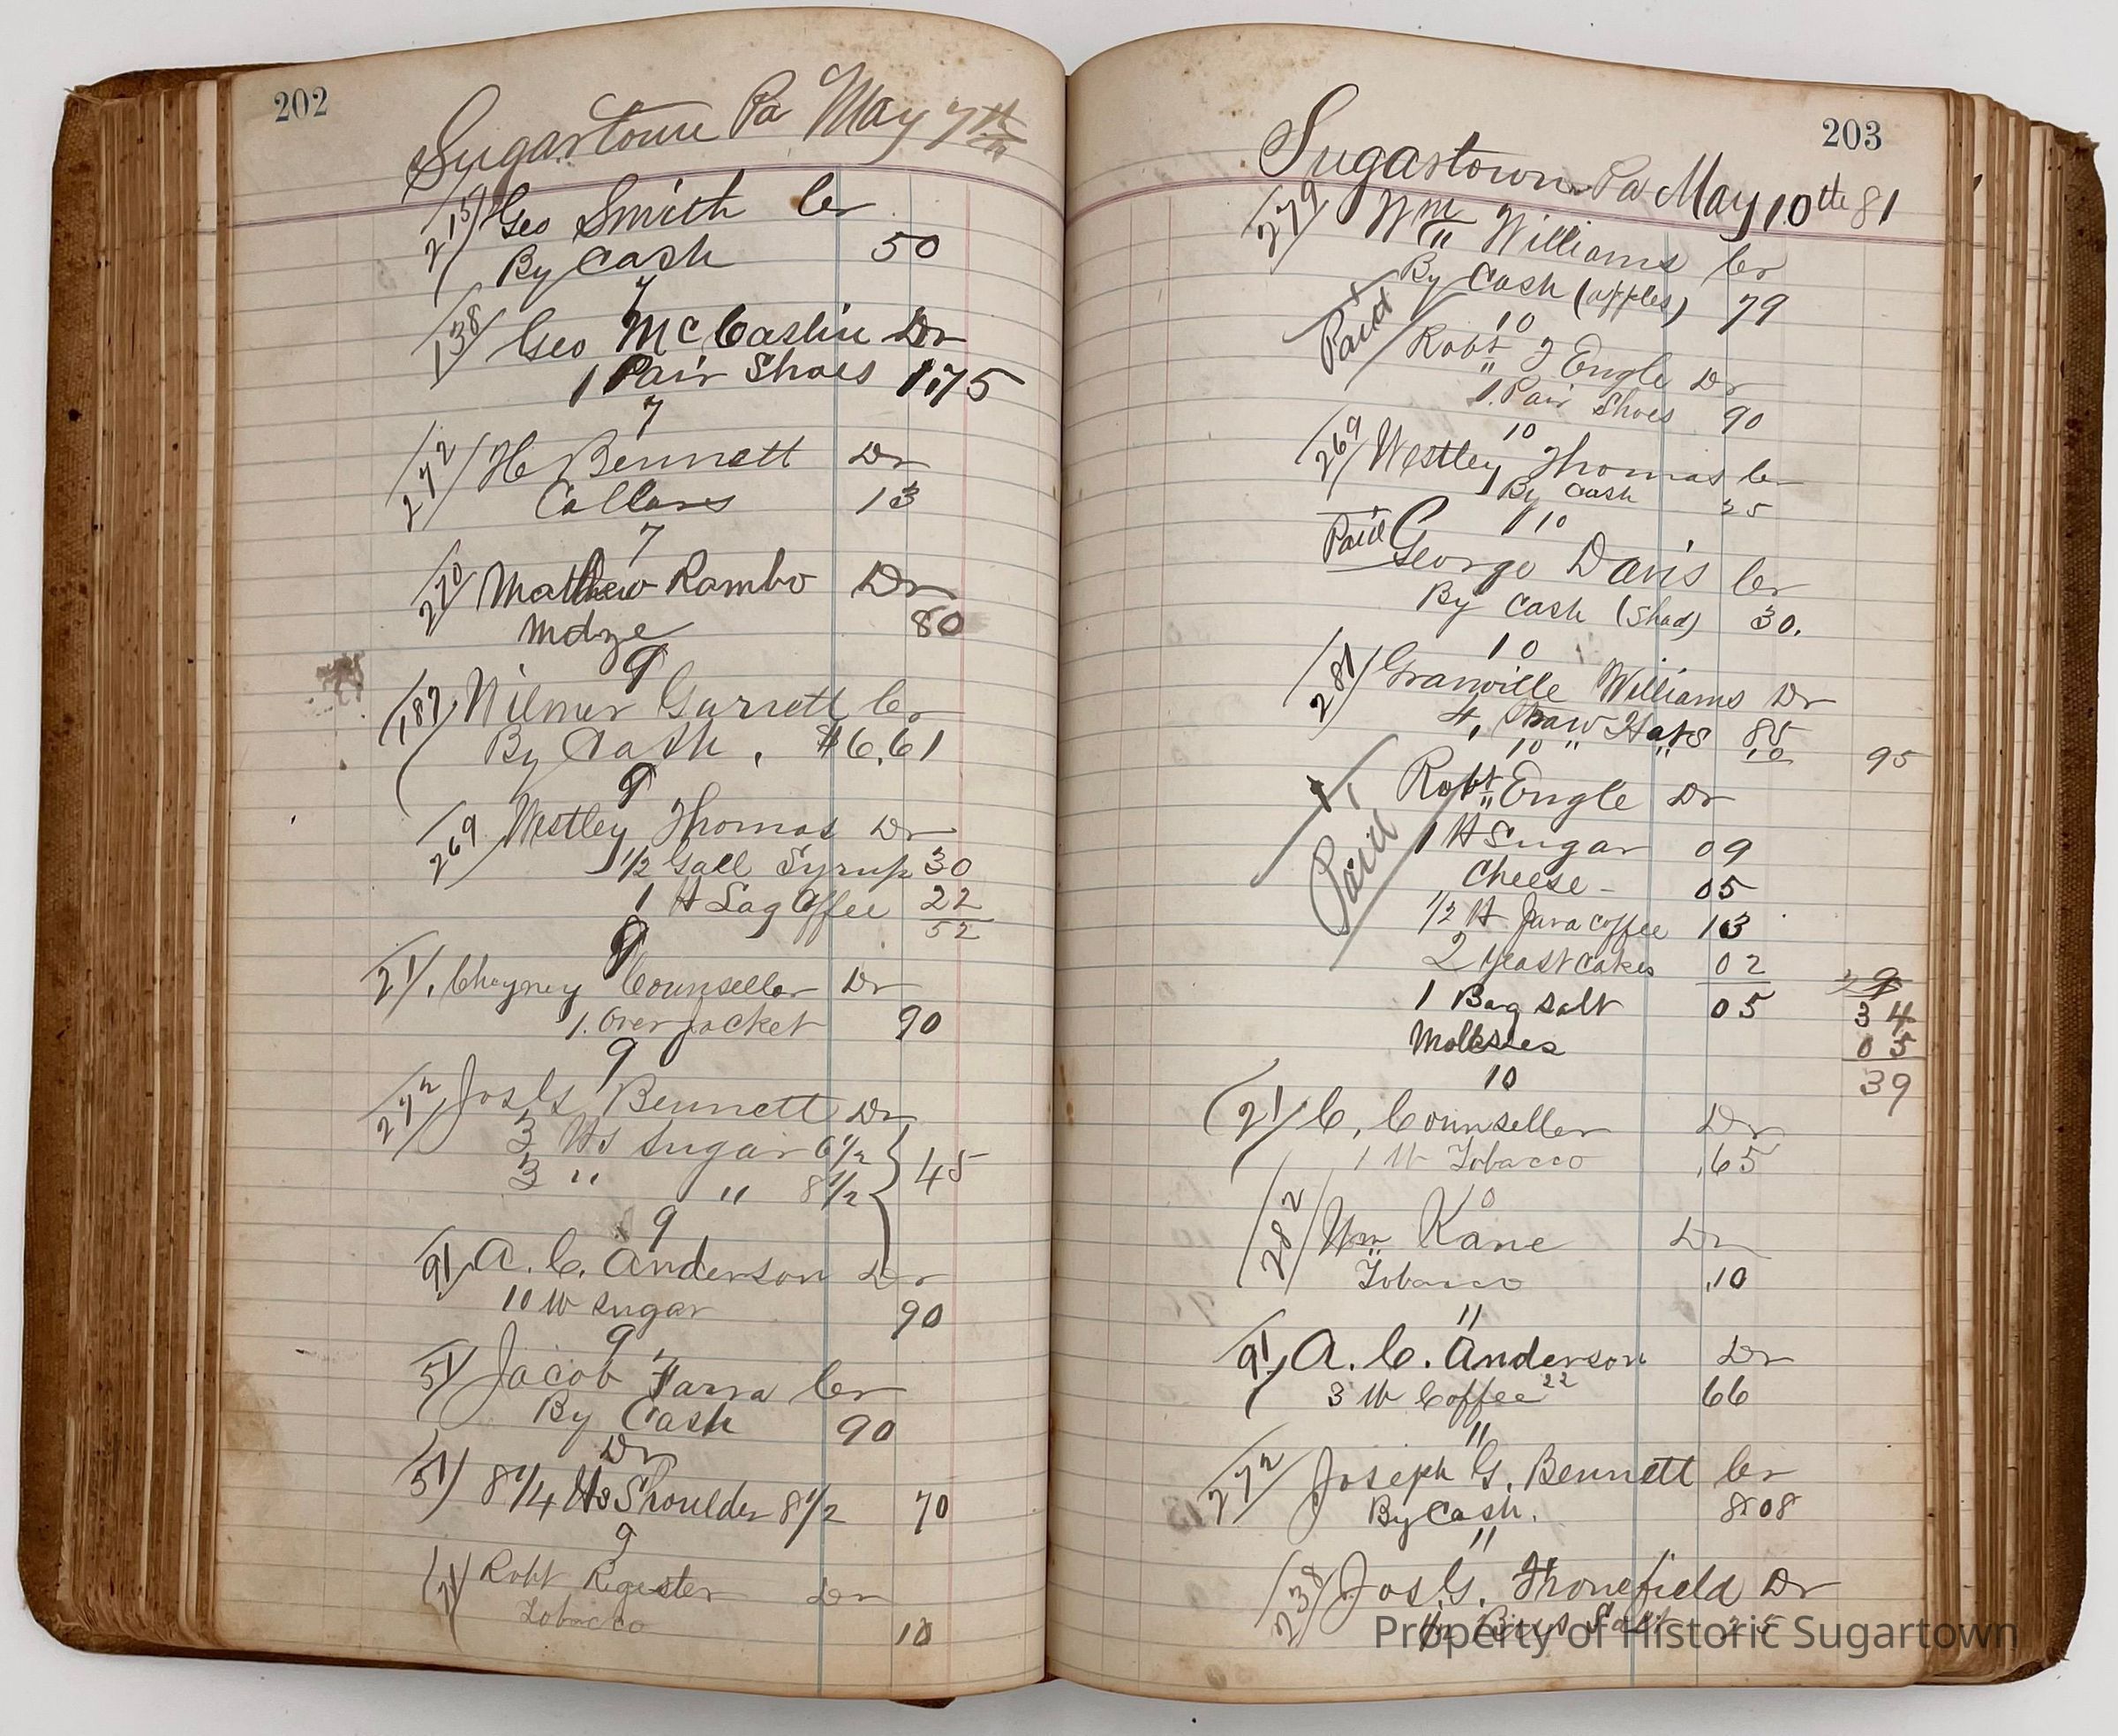 202
Sugartown Pa May 7th
215 Geo Smith Cr
By Cash 50
7
138 Geo McCaslin Dr
1 Pair Shoes 1.75
7
272 H Bennett Dr
Collars 13
7
220 Matthew Rambo Dr
Mdze 80
9
187 Wilmer Garrett Cr
By Cash. $6.61
9
269 Westley Thomas Dr
1/2 Gall Syrup 30
1 lb Lag Coffee 22
52
9
21 Cheyney Counseller Dr
1. Over Jacket 90
9
272 Jos G Bennett Dr
3 lbs Sugar 6 1/2
45
3 " " 8 1/2
9
91 A. C. Anderson Dr
10 lb sugar 90
9
51 Jacob Farra Cr
By Cash 90
Dr
51 8 1/4 lbs Shoulder 8 1/2 70
9
21 Robt Register Dr
Tobacco 10
203
Sugartown Pa May 10th 81
279 Wm Williams Cr
By Cash (apples) 79
10
Paid Robt J Engle Dr
1. Pair Shoes 90
10
269 Westley Thomas Cr
By Cash 25
10
Paid George Davis Cr
By Cash (Shad) 30.
10
281 Granville Williams Dr
4, Straw Hats 85
10 " " 10 95
Paid Robt Engle Dr
1 lb Sugar 09
Cheese - 05
1/2 lb Java coffee 13
2 yeast cakes 02 29
1 Bag salt 05 34
Mollsses 05
10 39
21 C. Counseller Dr
1 lb Tobacco .65
10
282 Wm Kane Dr
Tobacco .10
11
91 A. C. Anderson Dr
3 lb Coffee 22 66
11
272 Joseph G. Bennett Cr
By Cash. 8.08
11
238 Jos G. Thonefield Dr
Bags Salt 25
Property of Historic Sugartown